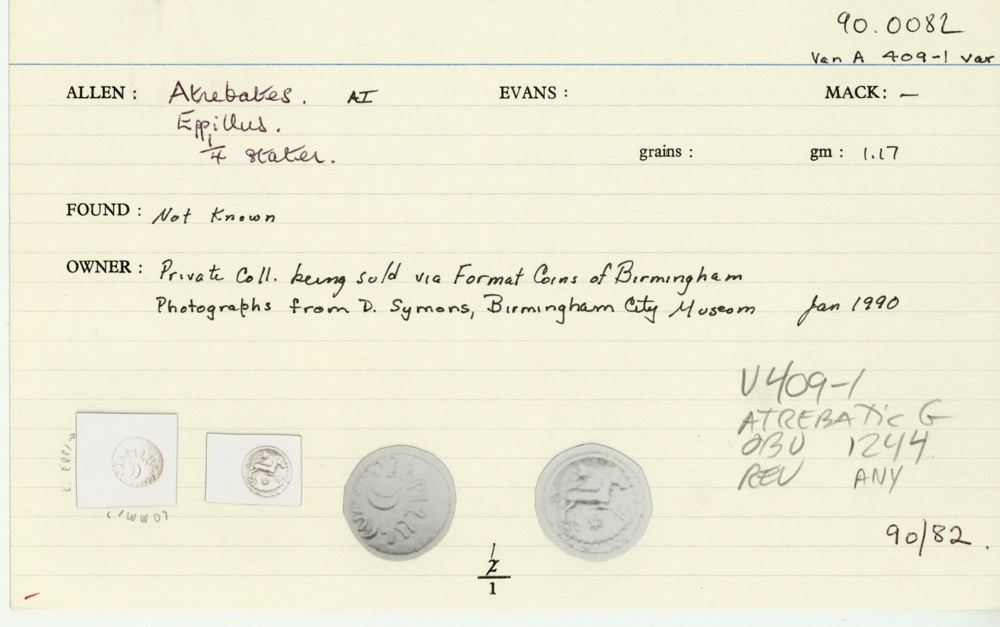 90.0082
Van A 409-1 var
ALLEN : Atrebates. AI EVANS : MACK: —
Eppillus.
1/4 stater. grains : gm : 1.17
FOUND : Not Known
OWNER : Private Coll. being sold via Format Coins of Birmingham
Photographs from D. Symons, Birmingham City Museom Jan 1990
V409-1
ATREBATIC G
OBV 1244
REV ANY
90/82.
1
2
1